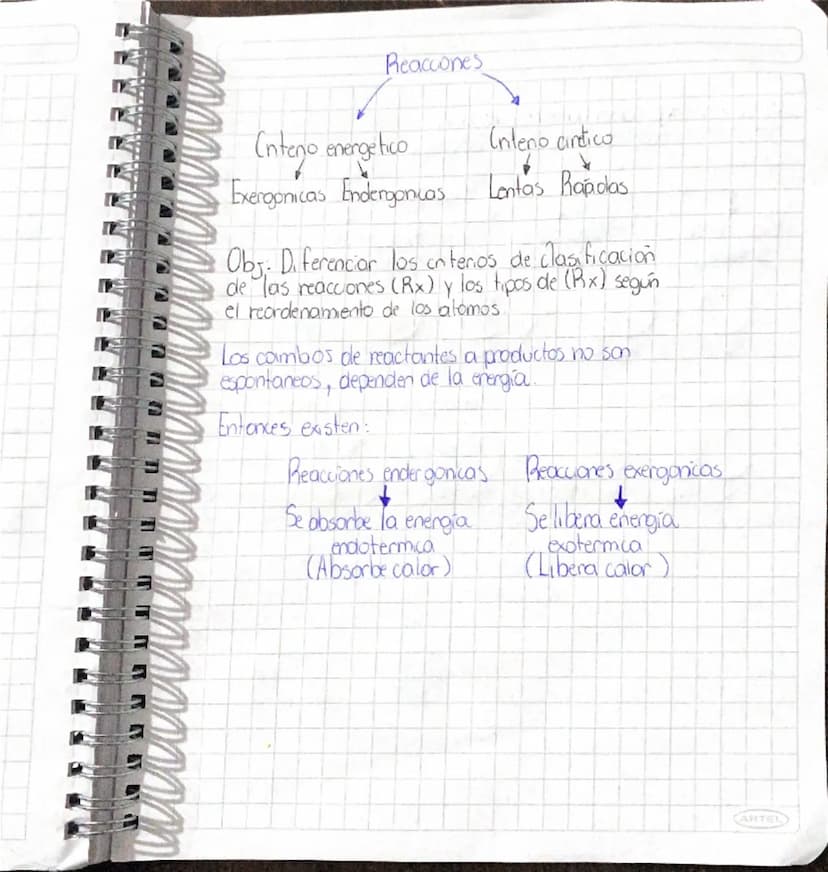 Reacciones
Criterio energético Criterio cinético
Exergonicas Endergonicas Lentas Rapidas
Obj: Diferenciar los criterios de clasificación
de las reacciones (Rx) y los tipos de (Rx) según
el reordenamiento de los atomos
Los cambios de reactantes a productos no son
espontaneos, dependen de la energía.
Entonces existen:
Reacciones endergonicas Reacciones exergonicas
Se absorbe la energía Se libera energía
endotermica exotermica
(Absorbe calor) (Libera calor)
ARTEL